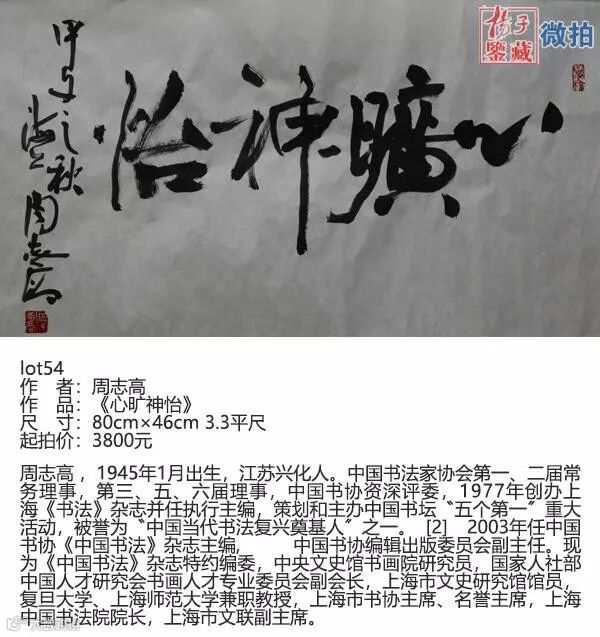 杨子
鉴藏
微拍
心曠神怡
甲午之秋
海上周志高
lot54
作　者：周志高
作　品：《心旷神怡》
尺　寸：80cm×46cm 3.3平尺
起拍价：3800元
周志高 ，1945年1月出生，江苏兴化人。中国书法家协会第一、二届常
务理事，第三、五、六届理事，中国书协资深评委，1977年创办上
海《书法》杂志并任执行主编，策划和主办中国书坛“五个第一”重大
活动，被誉为“中国当代书法复兴奠基人”之一。 [2] 2003年任中国
书协《中国书法》杂志主编， 中国书协编辑出版委员会副主任。现
为《中国书法》杂志特约编委，中央文史馆书画院研究员，国家人社部
中国人才研究会书画人才专业委员会副会长，上海市文史研究馆馆员，
复旦大学、上海师范大学兼职教授，上海市书协主席、名誉主席，上海
中国书法院院长，上海市文联副主席。